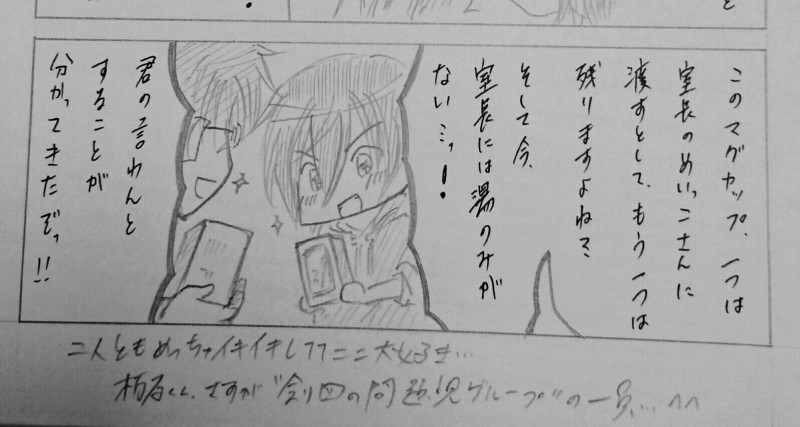 このマグカップ、一つは
室長のめいっこさんに
渡すとして、もう一つは
残りますよね?
そして今、
室長には湯のみが
ない…っ!
君の言わんと
することが
分かってきたぞっ!!
二人ともめっちゃイキイキしててここ大好き…
柏石くん、さすが"創図の問題児グループ"の一員…^^